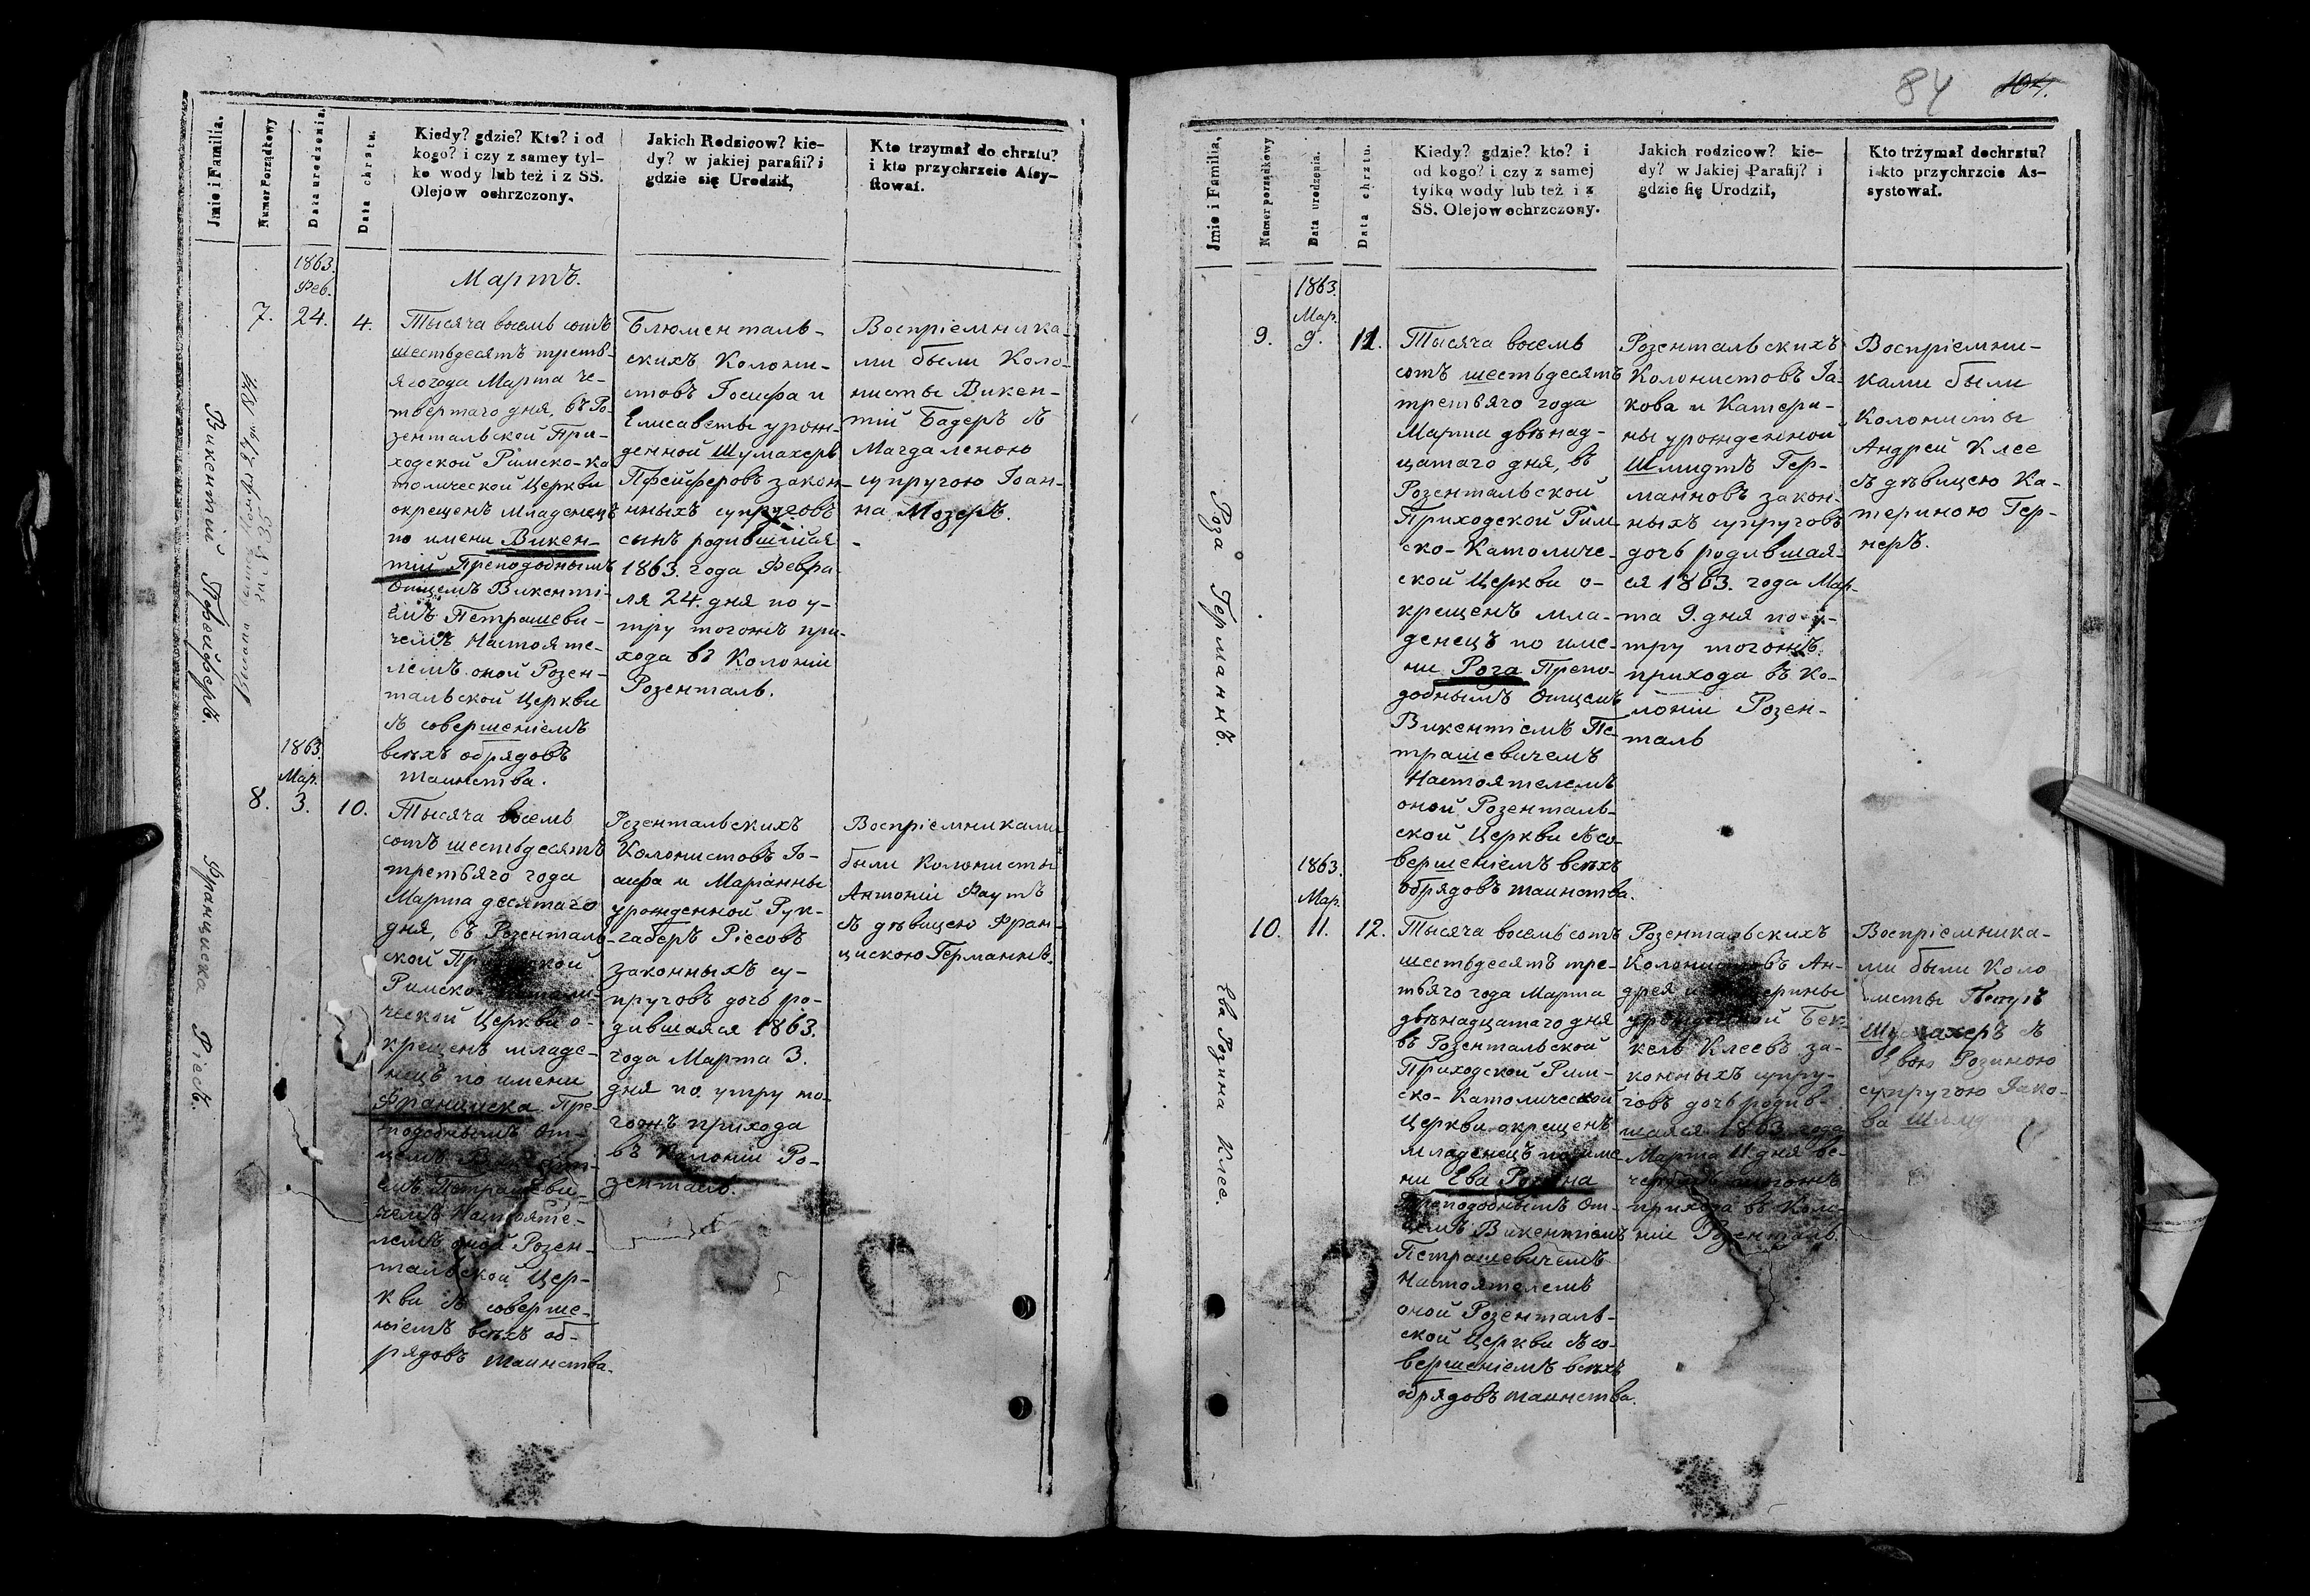 Jmie i Familia.
Numer Porządkowy
Data urodzenia.
Data chrztu.
Kiedy? gdzie? Kto? i od
kogo? i czy z samey tyl-
ko wody lub też i z SS.
Olejow ochrzczony.
Jakich Rodzicow? kie-
dy? w jakiej parafii? i
gdzie się Urodził,
Kto trzymał do chrztu?
i kto przychrzcie Assy-
stował.
1863.
Фев.
Мартъ.
Викентий Пфейферъ.
7.
24.
4.
Тысяча восемь сотъ
шестьдесятъ треть-
яго года Марта че-
твертаго дня, въ Ро-
зентальской При-
ходской Римско-Ка
толической Церкви
окрещенъ младенецъ
по имени Викен-
тій Преподобнымъ
Отцемъ Викенті-
емъ Петрашеви-
чемъ Настояте-
лемъ оной Розен-
тальской Церкви
съ совершеніемъ
всѣхъ обрядовъ
таинства.
Блюменталь-
скихъ Колони-
стовъ Іосифа и
Елисаветы урож-
денной Шумахеръ
Пфейферовъ закон-
нныхъ супруговъ
сынъ родившійся
1863. года Февра-
ля 24. дня по у-
тру тогожъ при-
хода въ Колоніи
Розенталь.
Воспріемника-
ми были Коло-
нисты Викен-
тій Бадеръ съ
Магдаленою
супругою Іоан-
на Мозеръ.
1863.
Мар.
Франциска Ріесъ.
8.
3.
10.
Тысяча восемь
сотъ шестьдесятъ
третьяго года
Марта десятаго
дня, въ Розенталь-
ской Приходской
Римско-Католи-
ческой Церкви о-
крещенъ младе-
нецъ по имени
Франциска Пре-
подобнымъ От-
цемъ Викенті-
емъ Петрашеви-
чемъ Настояте-
лемъ оной Розен-
тальской Цер-
кви съ соверше-
ніемъ всѣхъ об-
рядовъ таинства.
Розентальскихъ
Колонистовъ Іо-
сифа и Маріанны
урожденной Рук-
габеръ Ріесовъ
законныхъ су-
пруговъ дочь ро-
дившаяся 1863.
года Марта 3.
дня по утру то-
гожъ прихода
въ Колоніи Ро-
зенталь.
Воспріемниками
были Колонисты
Антоній Фаутъ
съ дѣвицею Фран-
цискою Германнъ.
84
104.
Jmie i Familia,
Numer porządkowy
Data urodzenia.
Data chrztu.
Kiedy? gdzie? kto? i
od kogo? i czy z samej
tylko wody lub też i z
SS. Olejow ochrzczony.
Jakich rodzicow? kie-
dy? w Jakiej Parafij? i
gdzie się Urodził,
Kto trżymał dochrztu?
i kto przychrzcie As-
systował.
1863.
Мар.
Роза Германнъ.
9.
9.
12.
Тысяча восемь
сотъ шестьдесятъ
третьяго года
Марта двѣнад-
цатаго дня, въ
Розентальской
Приходской Рим-
ско-Католиче-
ской Церкви о-
крещенъ мла-
денецъ по име-
ни Роза Препо-
добнымъ Отцемъ
Викентіемъ Пе-
трашевичемъ
Настоятелемъ
оной Розенталь-
ской Церкви съ со-
вершеніемъ всѣхъ
обрядовъ таинства.
Розентальскихъ
Колонистовъ Іа-
кова и Катери-
ны урожденной
Шмидтъ Гер-
манновъ закон-
ныхъ супруговъ
дочь родившая-
ся 1863. года Мар-
та 9. дня по у-
тру тогожъ
прихода въ Ко-
лоніи Розен-
таль
Воспріемни-
ками были
Колонисты
Андрей Клее
съ дѣвицею Ка-
териною Гер-
неръ.
1863.
Мар.
Ева Розина Клее.
10.
11.
12.
Тысяча восемь сотъ
шестьдесятъ тре-
тьяго года Марта
двѣнадцатаго дня
въ Розентальской
Приходской Рим-
ско-Католической
Церкви окрещенъ
младенецъ по име-
ни Ева Розина
Преподобнымъ От-
цемъ Викентіемъ
Петрашевичемъ
Настоятелемъ
оной Розенталь-
ской Церкви съ со-
вершеніемъ всѣхъ
обрядовъ таинства.
Розентальскихъ
Колонистовъ Ан-
дрея и Катерины
урожденной Бек-
кель Клеевъ за-
конныхъ супру-
говъ дочь родив-
шаяся 1863. года
Марта 11 дня ве-
черомъ тогожъ
прихода въ Коло-
ніи Розенталь.
Воспріемника-
ми были Коло
нисты Петръ
Шумахеръ съ
Евою Розиною
супругою Іако-
ва